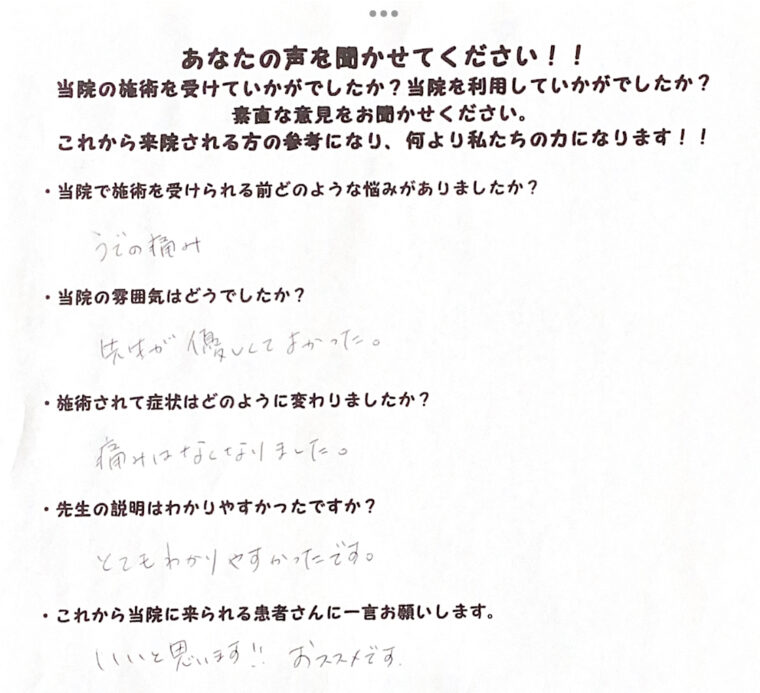 あなたの声を聞かせてください！！
当院の施術を受けていかがでしたか？当院を利用していかがでしたか？
素直な意見をお聞かせください。
これから来院される方の参考になり、何より私たちの力になります！！
・当院で施術を受けられる前どのような悩みがありましたか？
うでの痛み
・当院の雰囲気はどうでしたか？
先生が優しくてよかった。
・施術されて症状はどのように変わりましたか？
痛みはなくなりました。
・先生の説明はわかりやすかったですか？
とてもわかりやすかったです。
・これから当院に来られる患者さんに一言お願いします。
いいと思います!! おススメです.